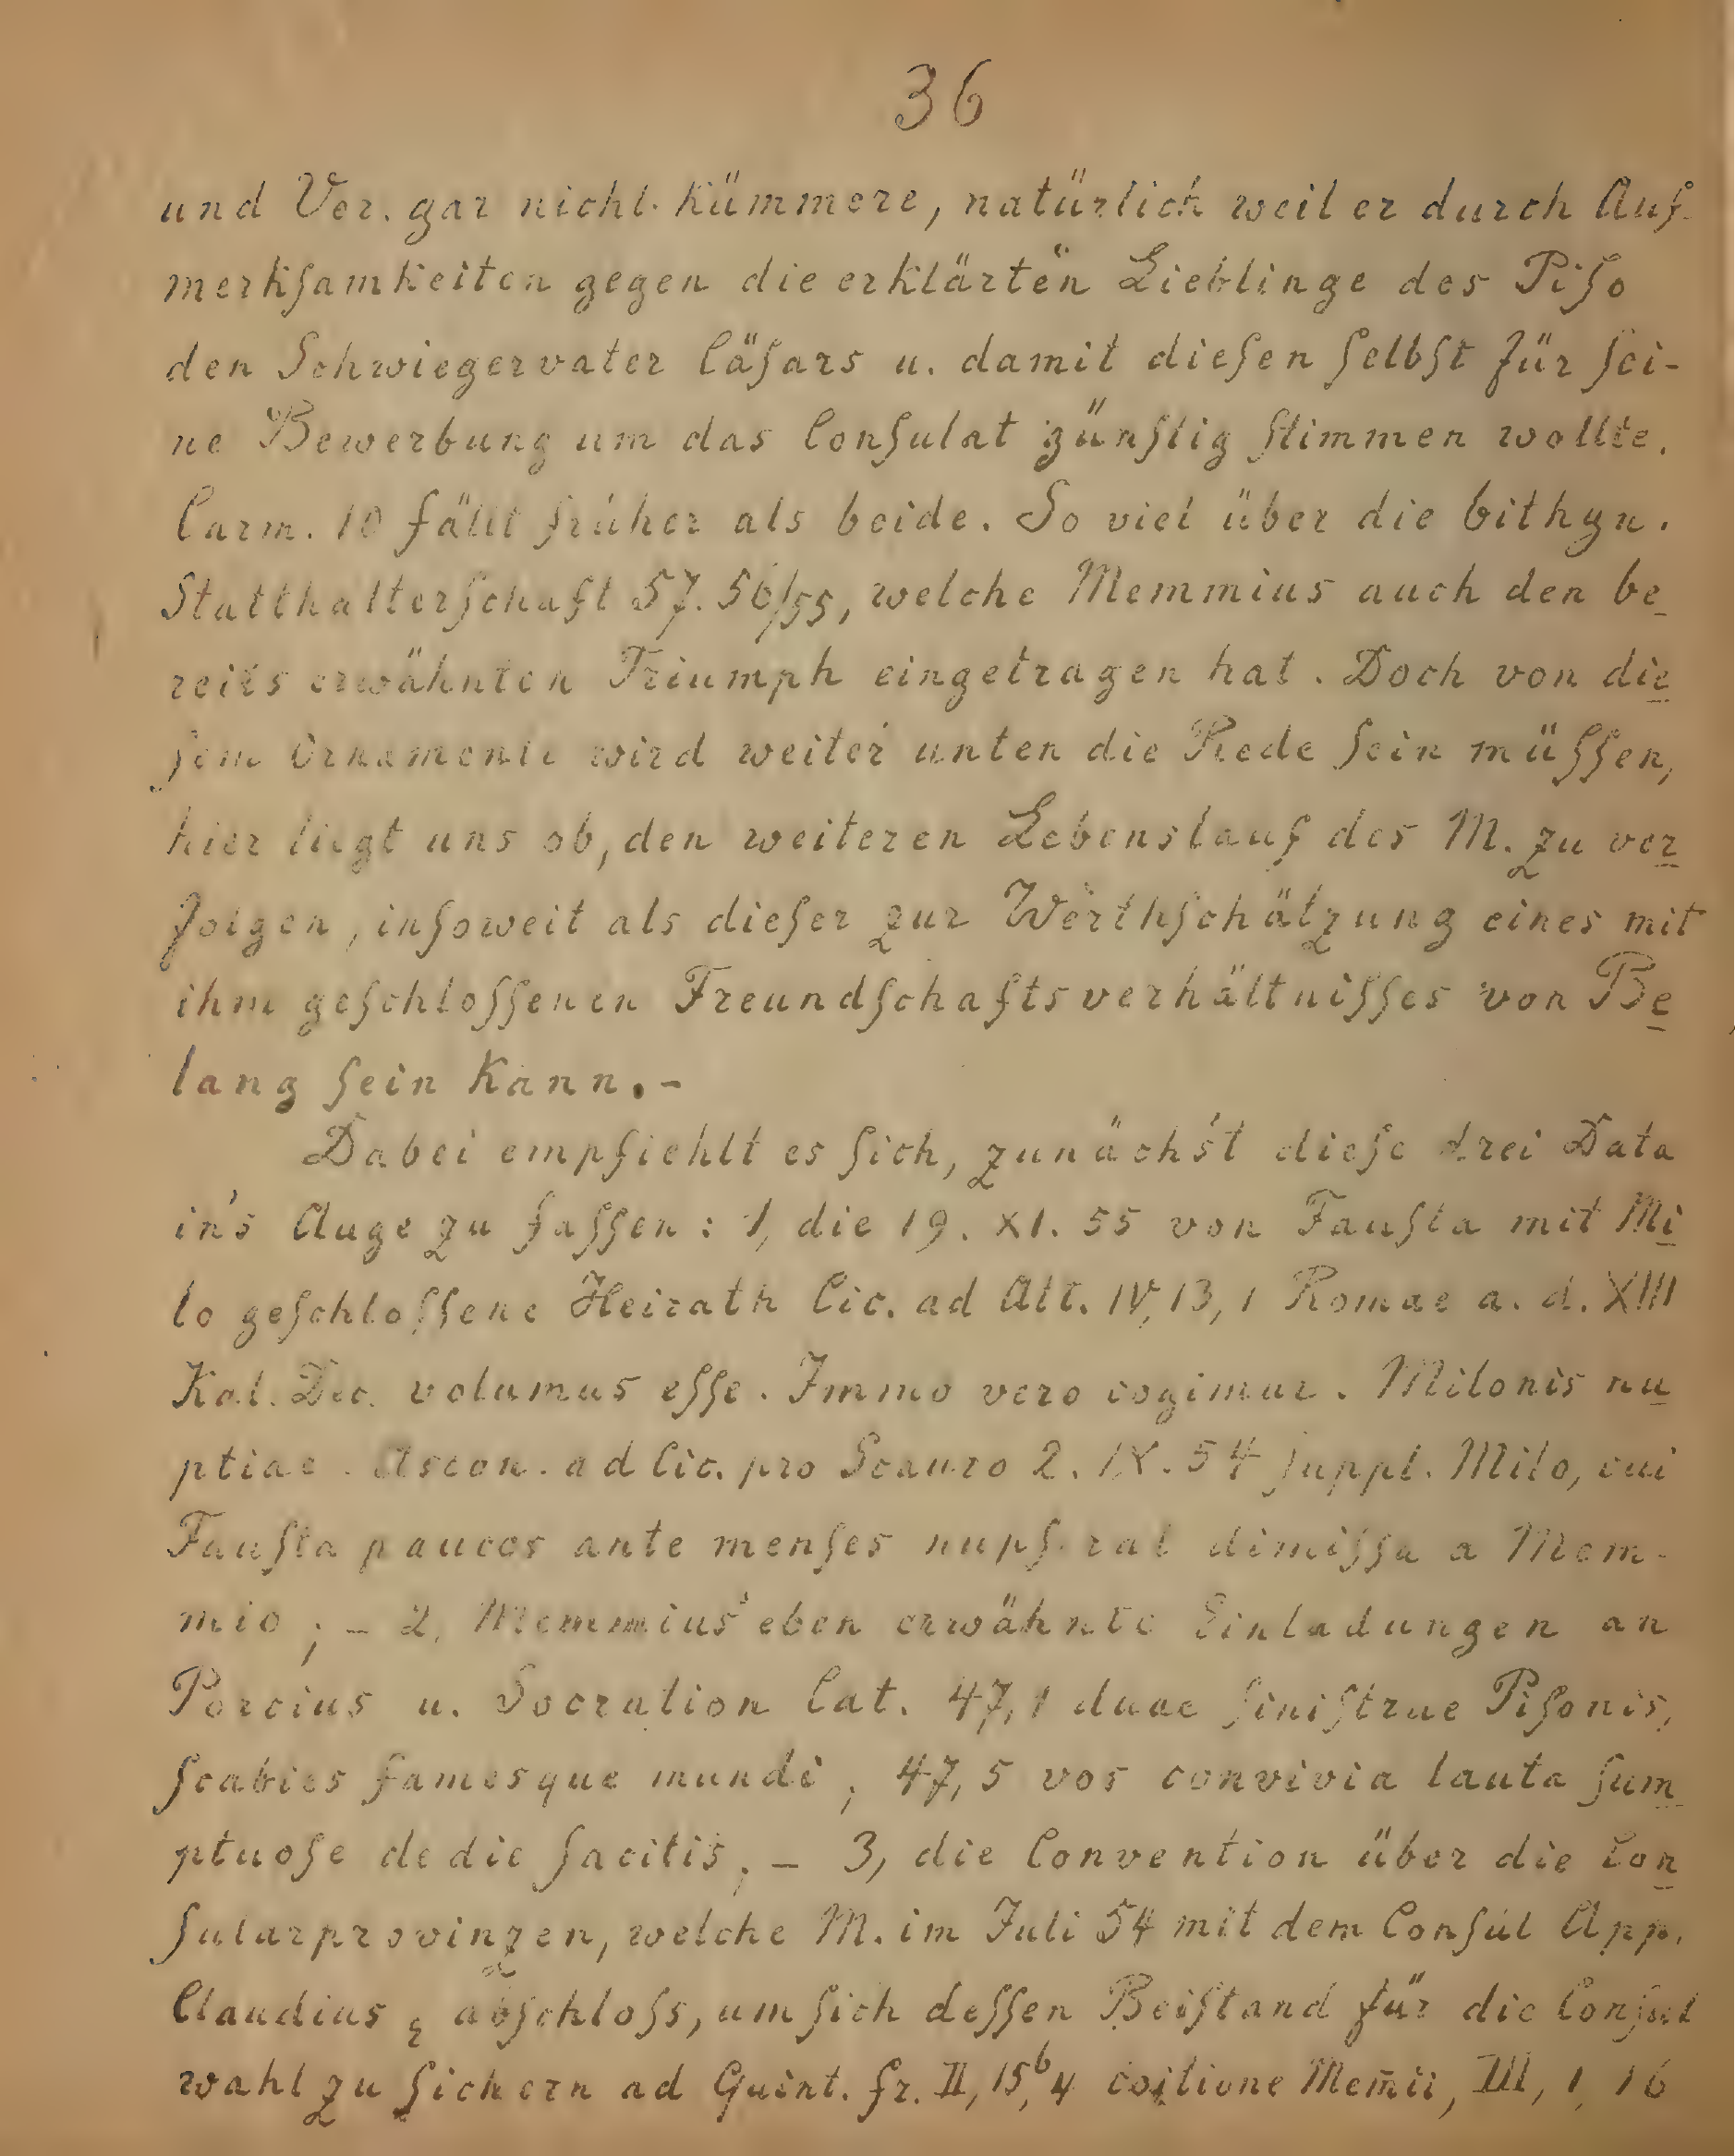 36
und Ver. gar nicht kümmere, natürlich weil er durch Auf-
merkſamkeiten gegen die erklärten Lieblinge des Piſo
den Schwiegervater Cäſars u. damit dieſen ſelbſt für ſei-
ne Bewerbung um das Conſulat günſtig ſtimmen wollte.
Carm. 10 fällt früher als beide. So viel über die bithyn.
Statthalterſchaft 57. 56/55, welche Memmius auch den be
reits erwähnten Triumph eingetragen hat. Doch von die
ſem Ornamente wird weiter unten die Rede ſein müſſen,
hier liegt uns ob, den weiteren Lebenslauf des M. zu ver
folgen, inſoweit als dieſer zur Werthſchätzung eines mit
ihm geſchloſſenen Freundſchaftsverhältniſſes von Be
lang ſein kann. -
Dabei empfiehlt es ſich, zunächſt dieſe drei Data
in's Auge zu faſſen: 1, die 19. XI. 55 von Fauſta mit Mi
lo geſchloſſene Heirath Cic. ad Att. IV, 13, 1 Romae a. d. XIII
Kal. Dec. volumus eſſe. Immo vero cogimur. Milonis nu
ptiae. Ascon. ad Cic. pro Scauro 2. IX. 54 ſuppl. Milo, cui
Fauſta paucos ante menſes nupſerat dimiſſa a Mem-
mio; - 2, Memmius' eben erwähnte Einladungen an
Porcius u. Socration Cat. 47, 1 duae ſiniſtrae Piſonis,
ſcabies famesque mundi; 47, 5 vos convivia lauta ſum
ptuoſe de die facitis; - 3, die Convention über die Con
ſularprovinzen, welche M. im Juli 54 mit dem Conſul App.
Claudius, abſchloſs, um ſich deſſen Beiſtand für die Conſul
wahl zu ſichern ad Quint. fr. II, 15b, 4 coitione Mem̄ii, III, 1, 16